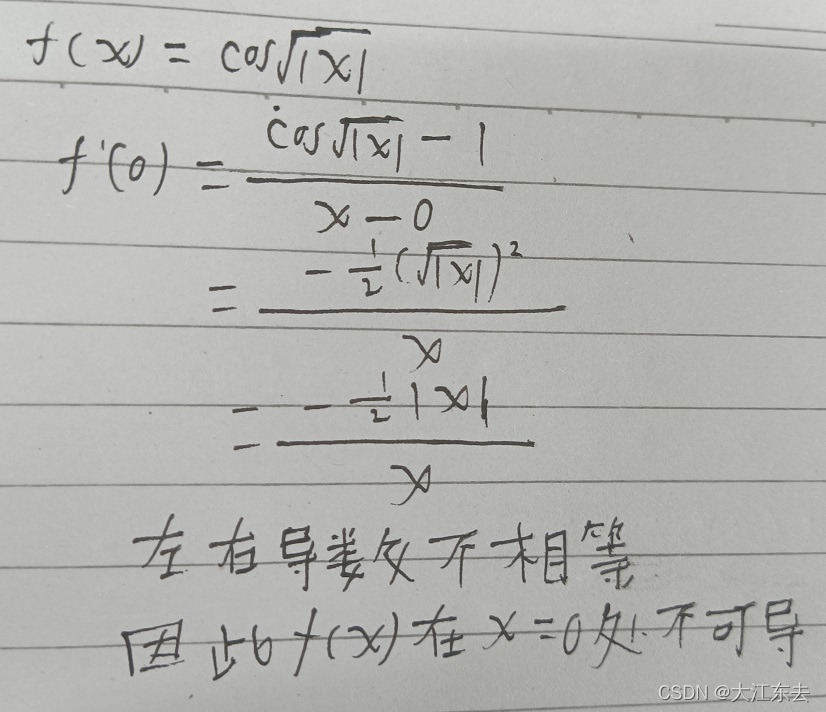 f(x) = cos√|x|
f'(0) = (cos√|x| - 1) / (x - 0)
= (-1/2 (√|x|)²) / x
= (-1/2 |x|) / x
左右导数不相等
因此 f(x) 在 x = 0 处不可导
CSDN @大江东去